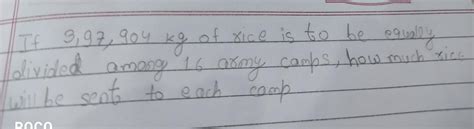 If 3,97,904 kg of rice is to be equally
divided among 16 army camps, how much rice
will be sent to each camp
POCO